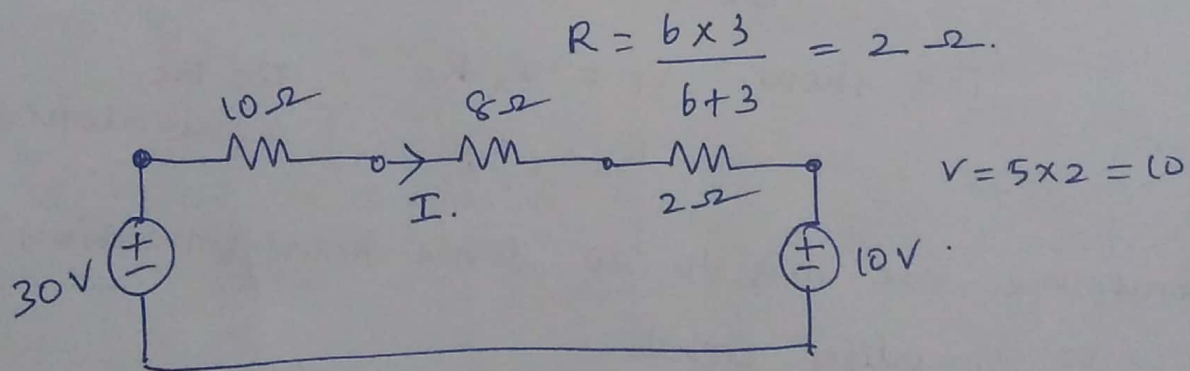 R = 6 × 3 / 6 + 3 = 2 Ω.
10Ω 8Ω
I. 2Ω
V = 5 × 2 = 10
30V + - + - 10V.